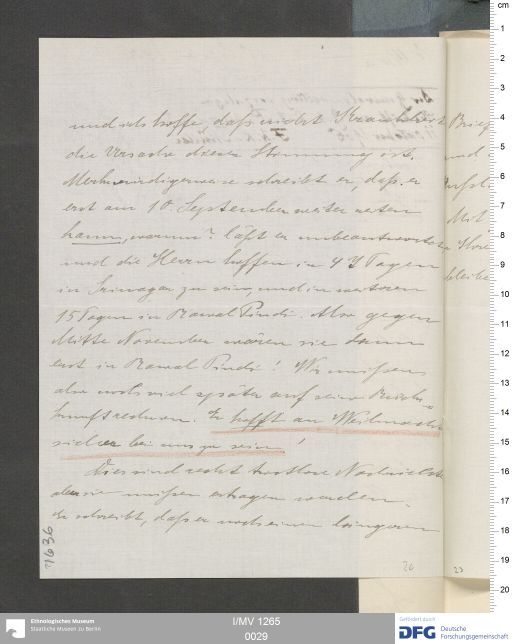 und ich hoffe, daß nicht Krankheit
die Ursache dieser Stimmung ist.
Merkwürdigerweise schreibt er, daß er
erst am 10. September weiter reiten
kann, warum? läßt er unbeantwortet
und die Herrn hoffen in 4 Tagen
in Srinagar zu sein, und in weiteren
15 Tagen in Rawal Pindi. Also gegen
Mitte November wären sie dann
erst in Rawal Pindi! Wir müssen
also noch viel später auf seine Rück-
kunft rechnen. Er hofft an Weihnachten
sicher bei uns zu sein!
Dies sind recht trostlose Nachrichten
aber sie müssen ertragen werden.
Er schreibt, daß er noch einen längeren
1636
23
Brief
und
Mit
bleibe
cm
1
2
3
4
5
6
7
8
9
10
11
12
13
14
15
16
17
18
19
20
Ethnologisches Museum
Staatliche Museen zu Berlin
I/MV 1265
0029
Gefördert durch
DFG Deutsche
Forschungsgemeinschaft